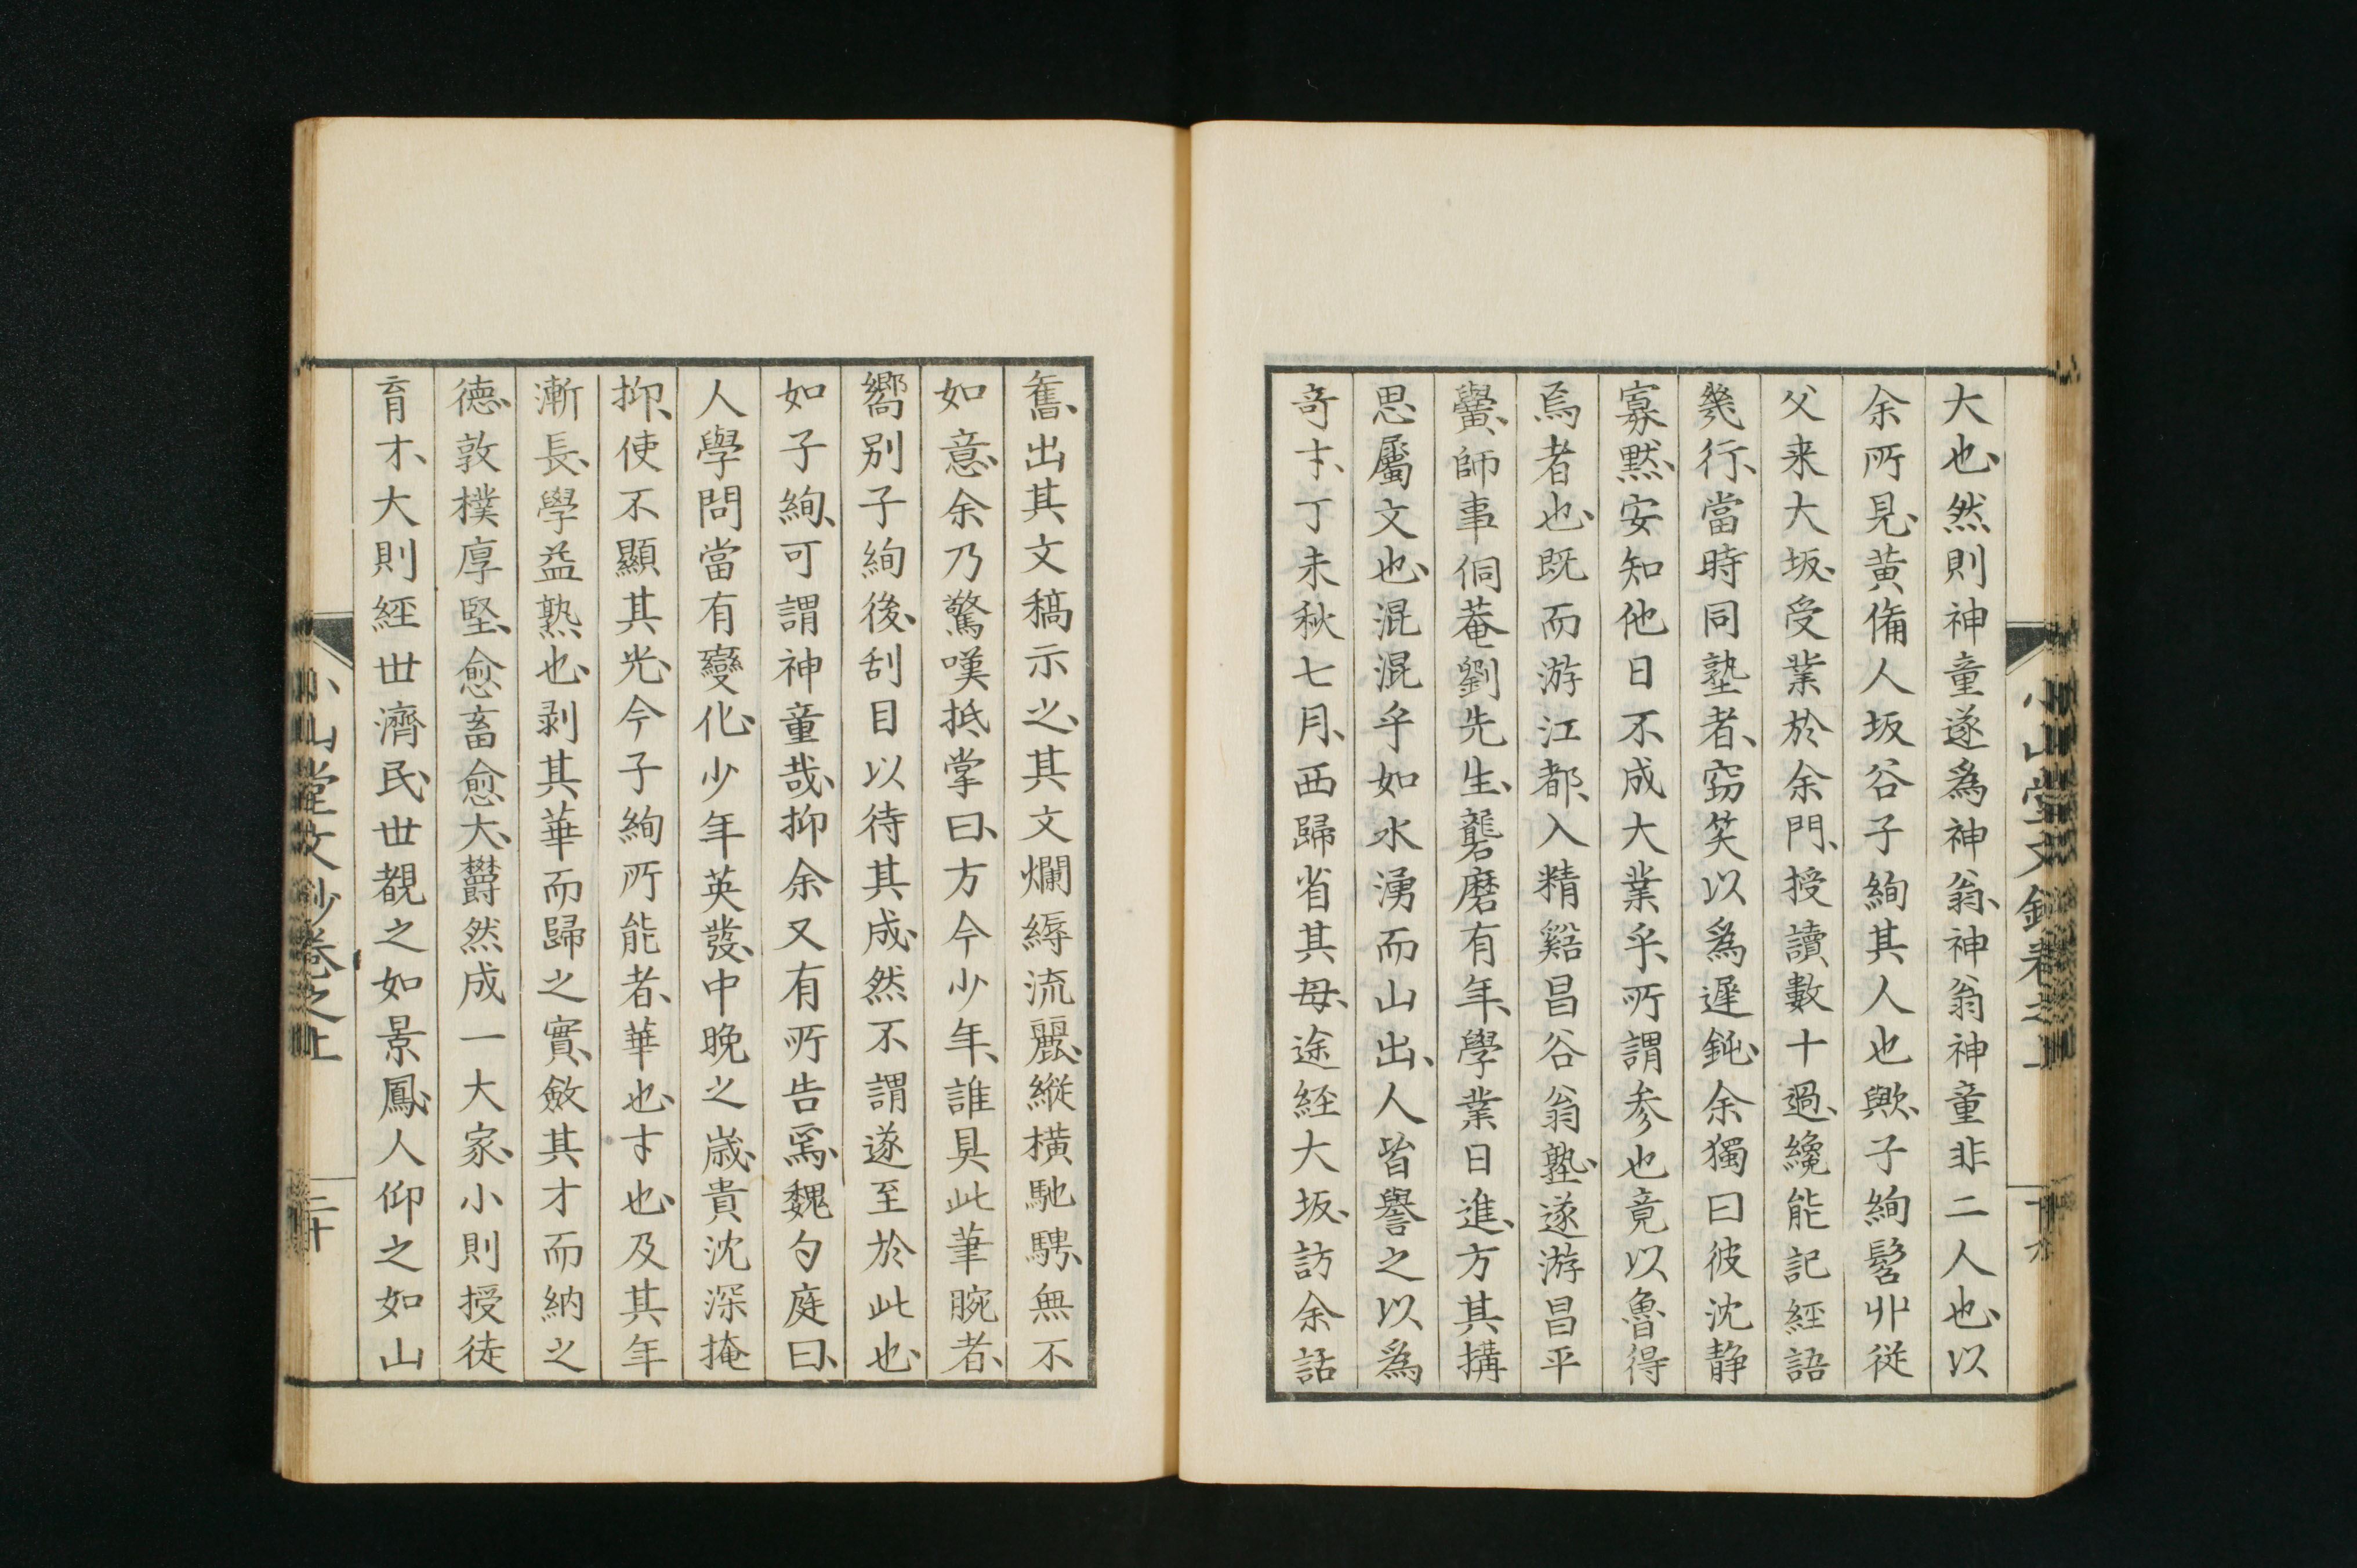 大也、然則神童遂爲神翁、神翁神童非二人也、以
余所見、黃備人坂谷子絢其人也歟、子絢髫丱從
父来大坂、受業於余門、授讀數十過、纔能記經語
幾行、當時同塾者、窃笑以爲遲鈍、余獨曰彼沈静
寡黙、安知他日不成大業乎、所謂参也竟以魯得
焉者也、既而游江都、入精谿昌谷翁塾、遂游昌平
黌、師事侗菴劉先生、礱磨有年、學業日進、方其搆
思屬文也、混混乎如水湧而山出、人皆譽之以爲
奇才、丁未秋七月、西歸省其母、途経大坂、訪余話
舊、出其文稿示之、其文爛縟流麗、縱橫馳騁、無不
如意、余乃驚嘆抵掌曰、方今少年、誰具此筆腕者、
嚮別子絢後、刮目以待其成、然不謂遂至於此也、
如子絢、可謂神童哉、抑余又有所告焉、魏勺庭曰、
人學問當有變化、少年英發、中晚之歳、貴沈深掩
抑、使不顯其光、今子絢所能者、華也才也、及其年
漸長、學益熟也、剥其華而歸之實、斂其才而納之
德、敦樸厚堅、愈畜愈大、欝然成一大家、小則授徒
育才、大則経世濟民、世覩之如景鳳、人仰之如山
小山堂文鈔卷之上
十九
小山堂文鈔卷之上
二十